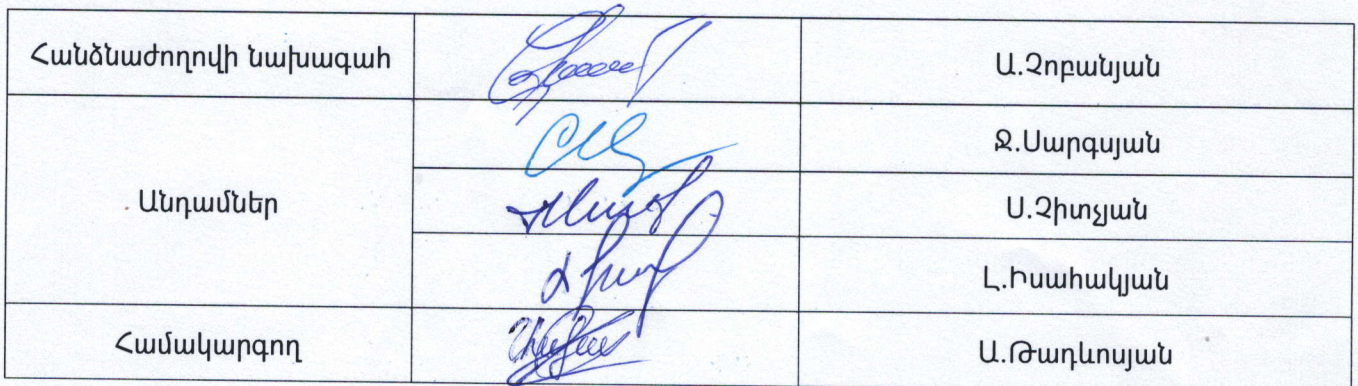 Հանձնաժողովի նախագահ
Ա.Չոբանյան
Ջ.Սարգսյան
Անդամներ
Ս.Չիտչյան
Լ.Իսահակյան
Համակարգող
Ա.Թադևոսյան